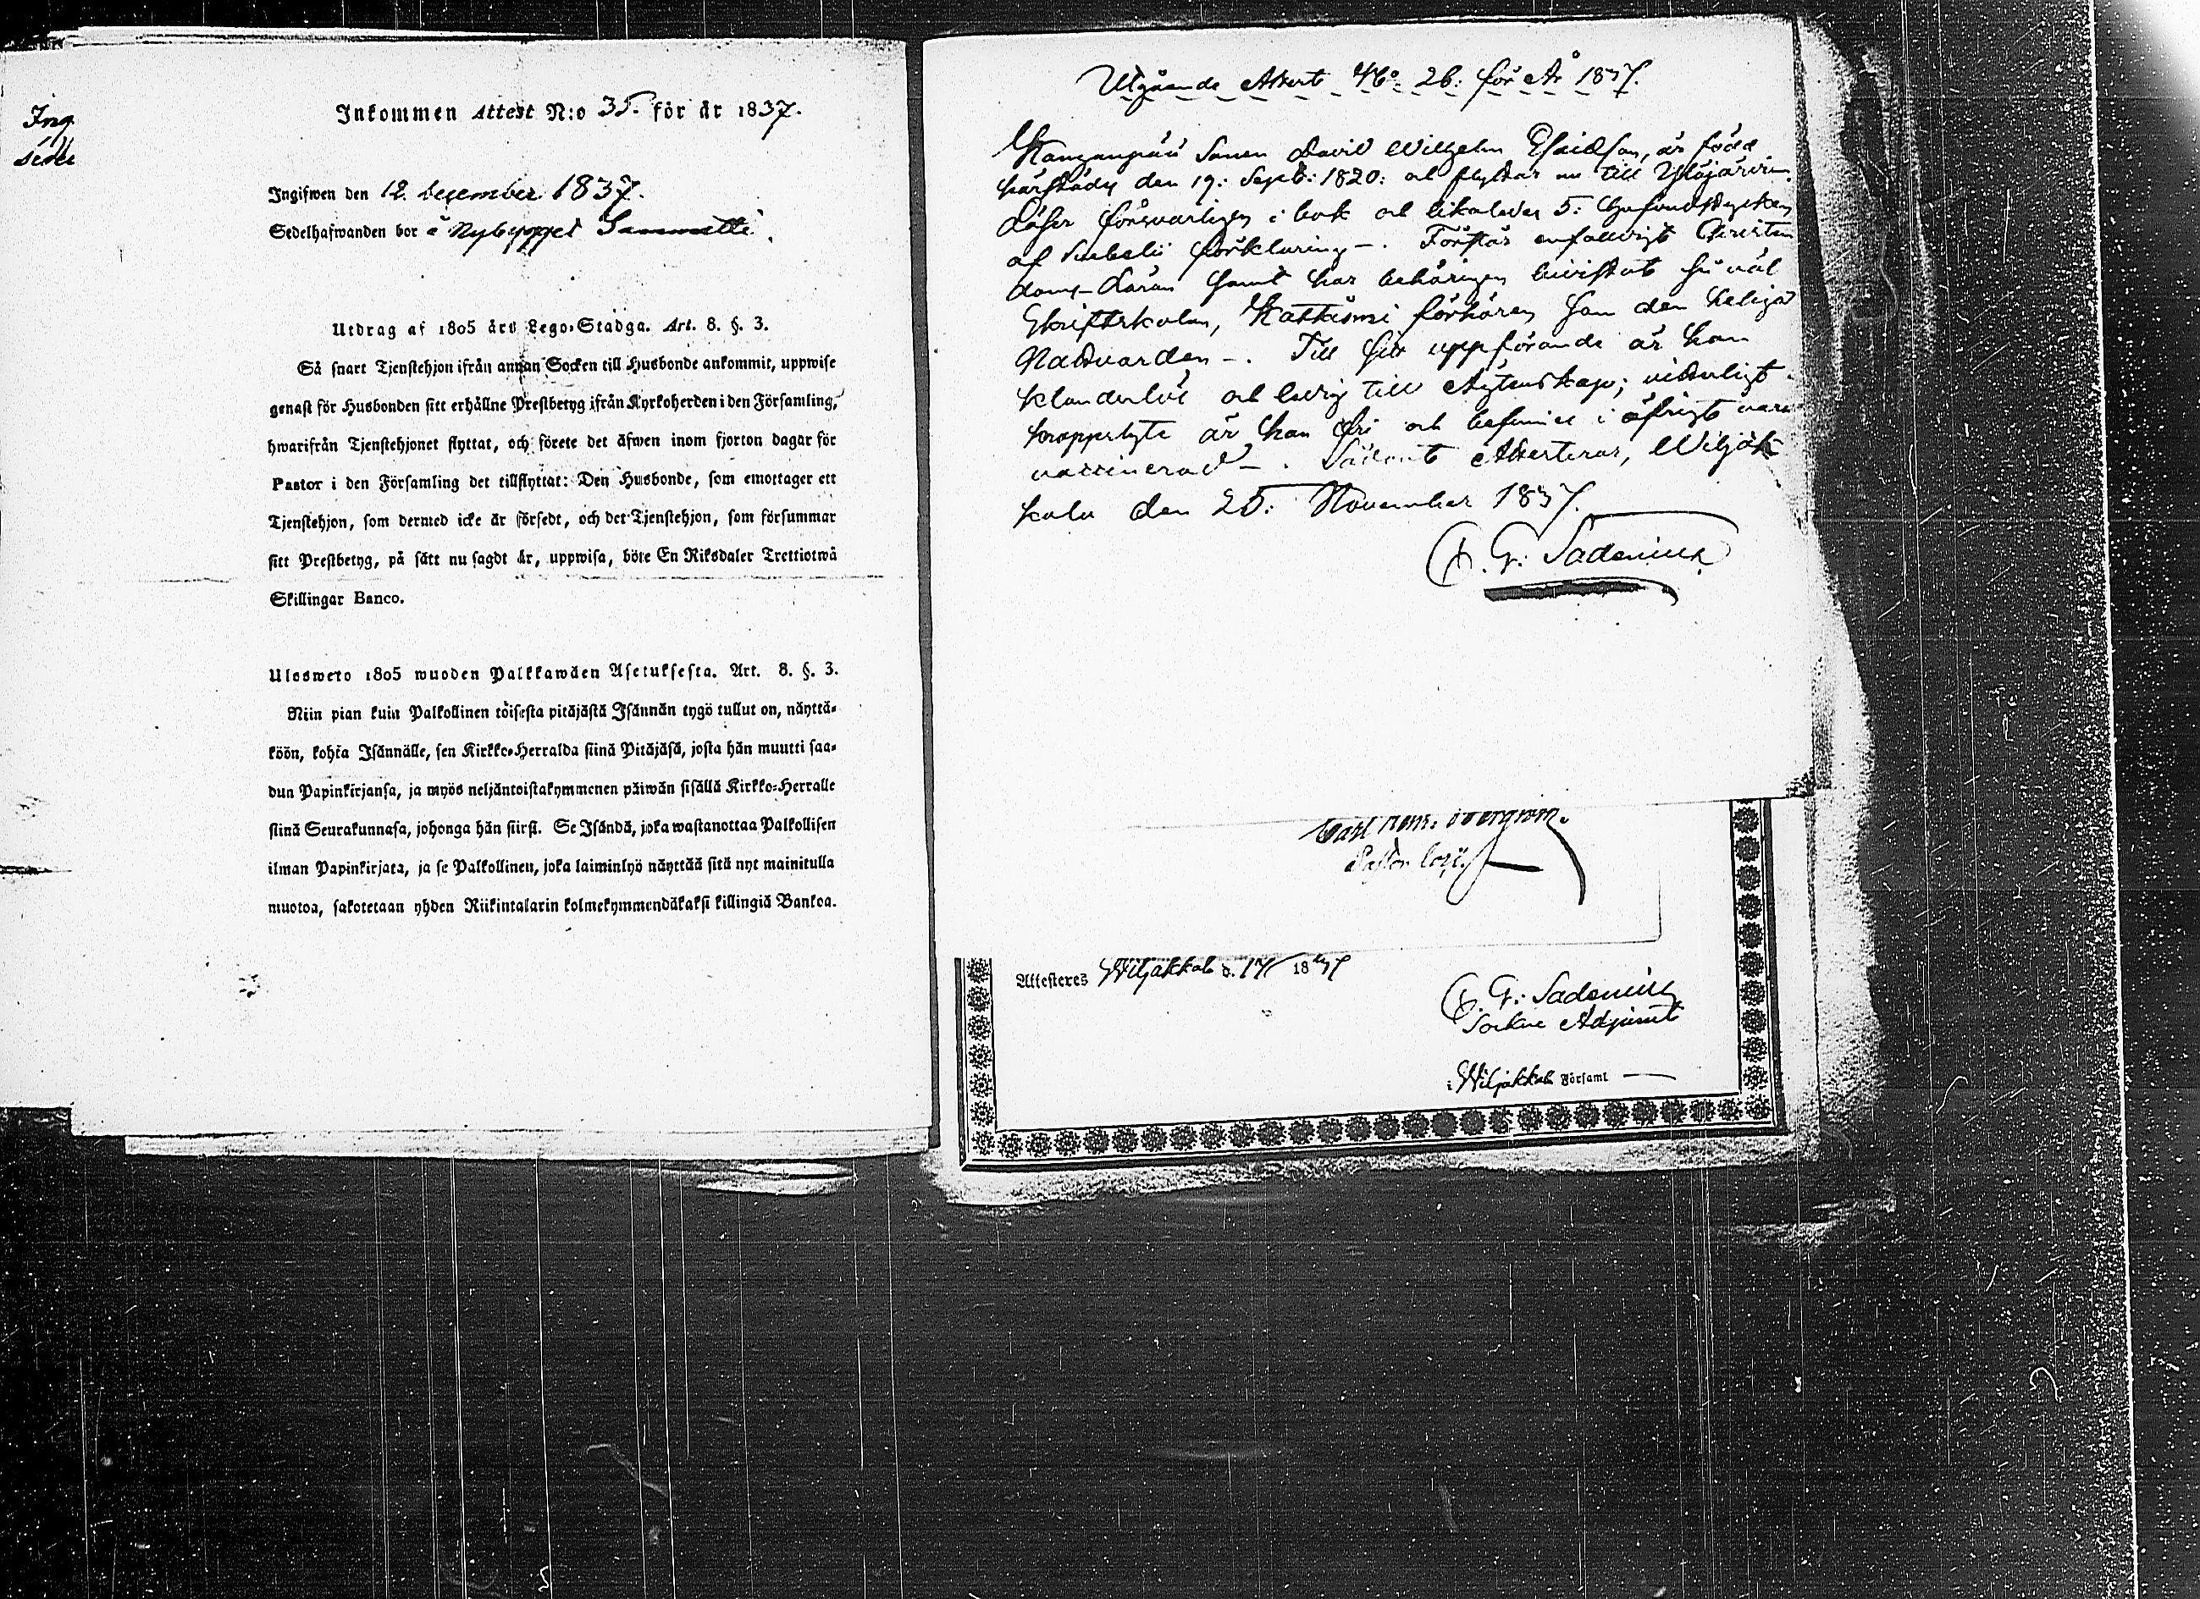 Ing.
Inkommen Attest N:o 35. för år 1837.
Ingifwen den 12 december 1837.
Sedelhafwanden bor å Nybygget Sammatti.
Utdrag af 1805 års Lego-Stadga. Art. 8. §. 3.
Så snart Tjenstehjon ifrån annan Socken till Husbonde ankommit, uppwise
genast för Husbonden sitt erhållne Prestbetyg ifrån Kyrkoherden i den Församling,
hwarifrån Tjenstehjonet flyttat, och förete det äfwen inom fjorton dagar för
Pastor i den Församling det tillflyttat: Den Husbonde, som emottager ett
Tjenstehjon, som dermed icke är försedt, och det Tjenstehjon, som försummar
sitt Prestbetyg, på sätt nu sagdt är, uppwisa, böte En Riksdaler Trettiotwå
Skillingar Banco.
Ulosweto 1805 wuoden Palkkawäen Asetuksesta. Art. 8. §. 3.
Niin pian kuin Palkollinen töisesta pitäjästä Isännän tygö tullut on, näyttä-
köön, kohta Isännälle, sen Kirkko-Herralda siinä Pitäjäsä, josta hän muutti saa-
dun Papinkirjansa, ja myös neljäntoistakymmenen päiwän sisällä Kirkko-Herralle
siinä Seurakunnasa, johonga hän siirsi. Se Isändä, joka wastanottaa Palkollisen
ilman Papinkirjata, ja se Palkollinen, joka laiminlyö näyttää sitä nyt mainitulla
muotoa, sakotetaan yhden Riikintalarin kolmekymmendäkaksi killingiä Bankoa.
Utgående Attest No 26: för År 1837.
Sonen David Wilhelm Esaiasson, är född
härstädes den 19: Sept: 1820: och flyttar nu till Ylöjärvi.
Läser försvarligen i bok och likaledes 5: Hufvudstycken
af Svebelii förklaring -. Förstår enfalldigt Christen
doms-Läran samt har behörigen bevistat så väl
Skriftskolan, förhören som den heliga
Nattvarden -. Till sitt uppförande är han
klanderlös och ledig till Äktenskap; vitterligt
kroppslyte är han fri och befinnes i öfrigt vara
vaccinerad -. Sådant Attesteras, Wiljak
kala den 25: November 1837.
G. Sadenius
Pastor
Attesteres Wiljakkala d. 17/ 1837
G: Sadenius
Sockne Adjunct
i Wiljakkala Församl